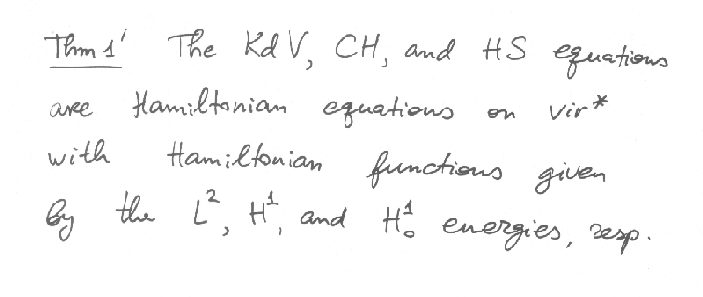 Thm 1' The KdV, CH, and HS equations
are Hamiltonian equations on vir*
with Hamiltonian functions given
by the L², H¹, and H¹₀ energies, resp.